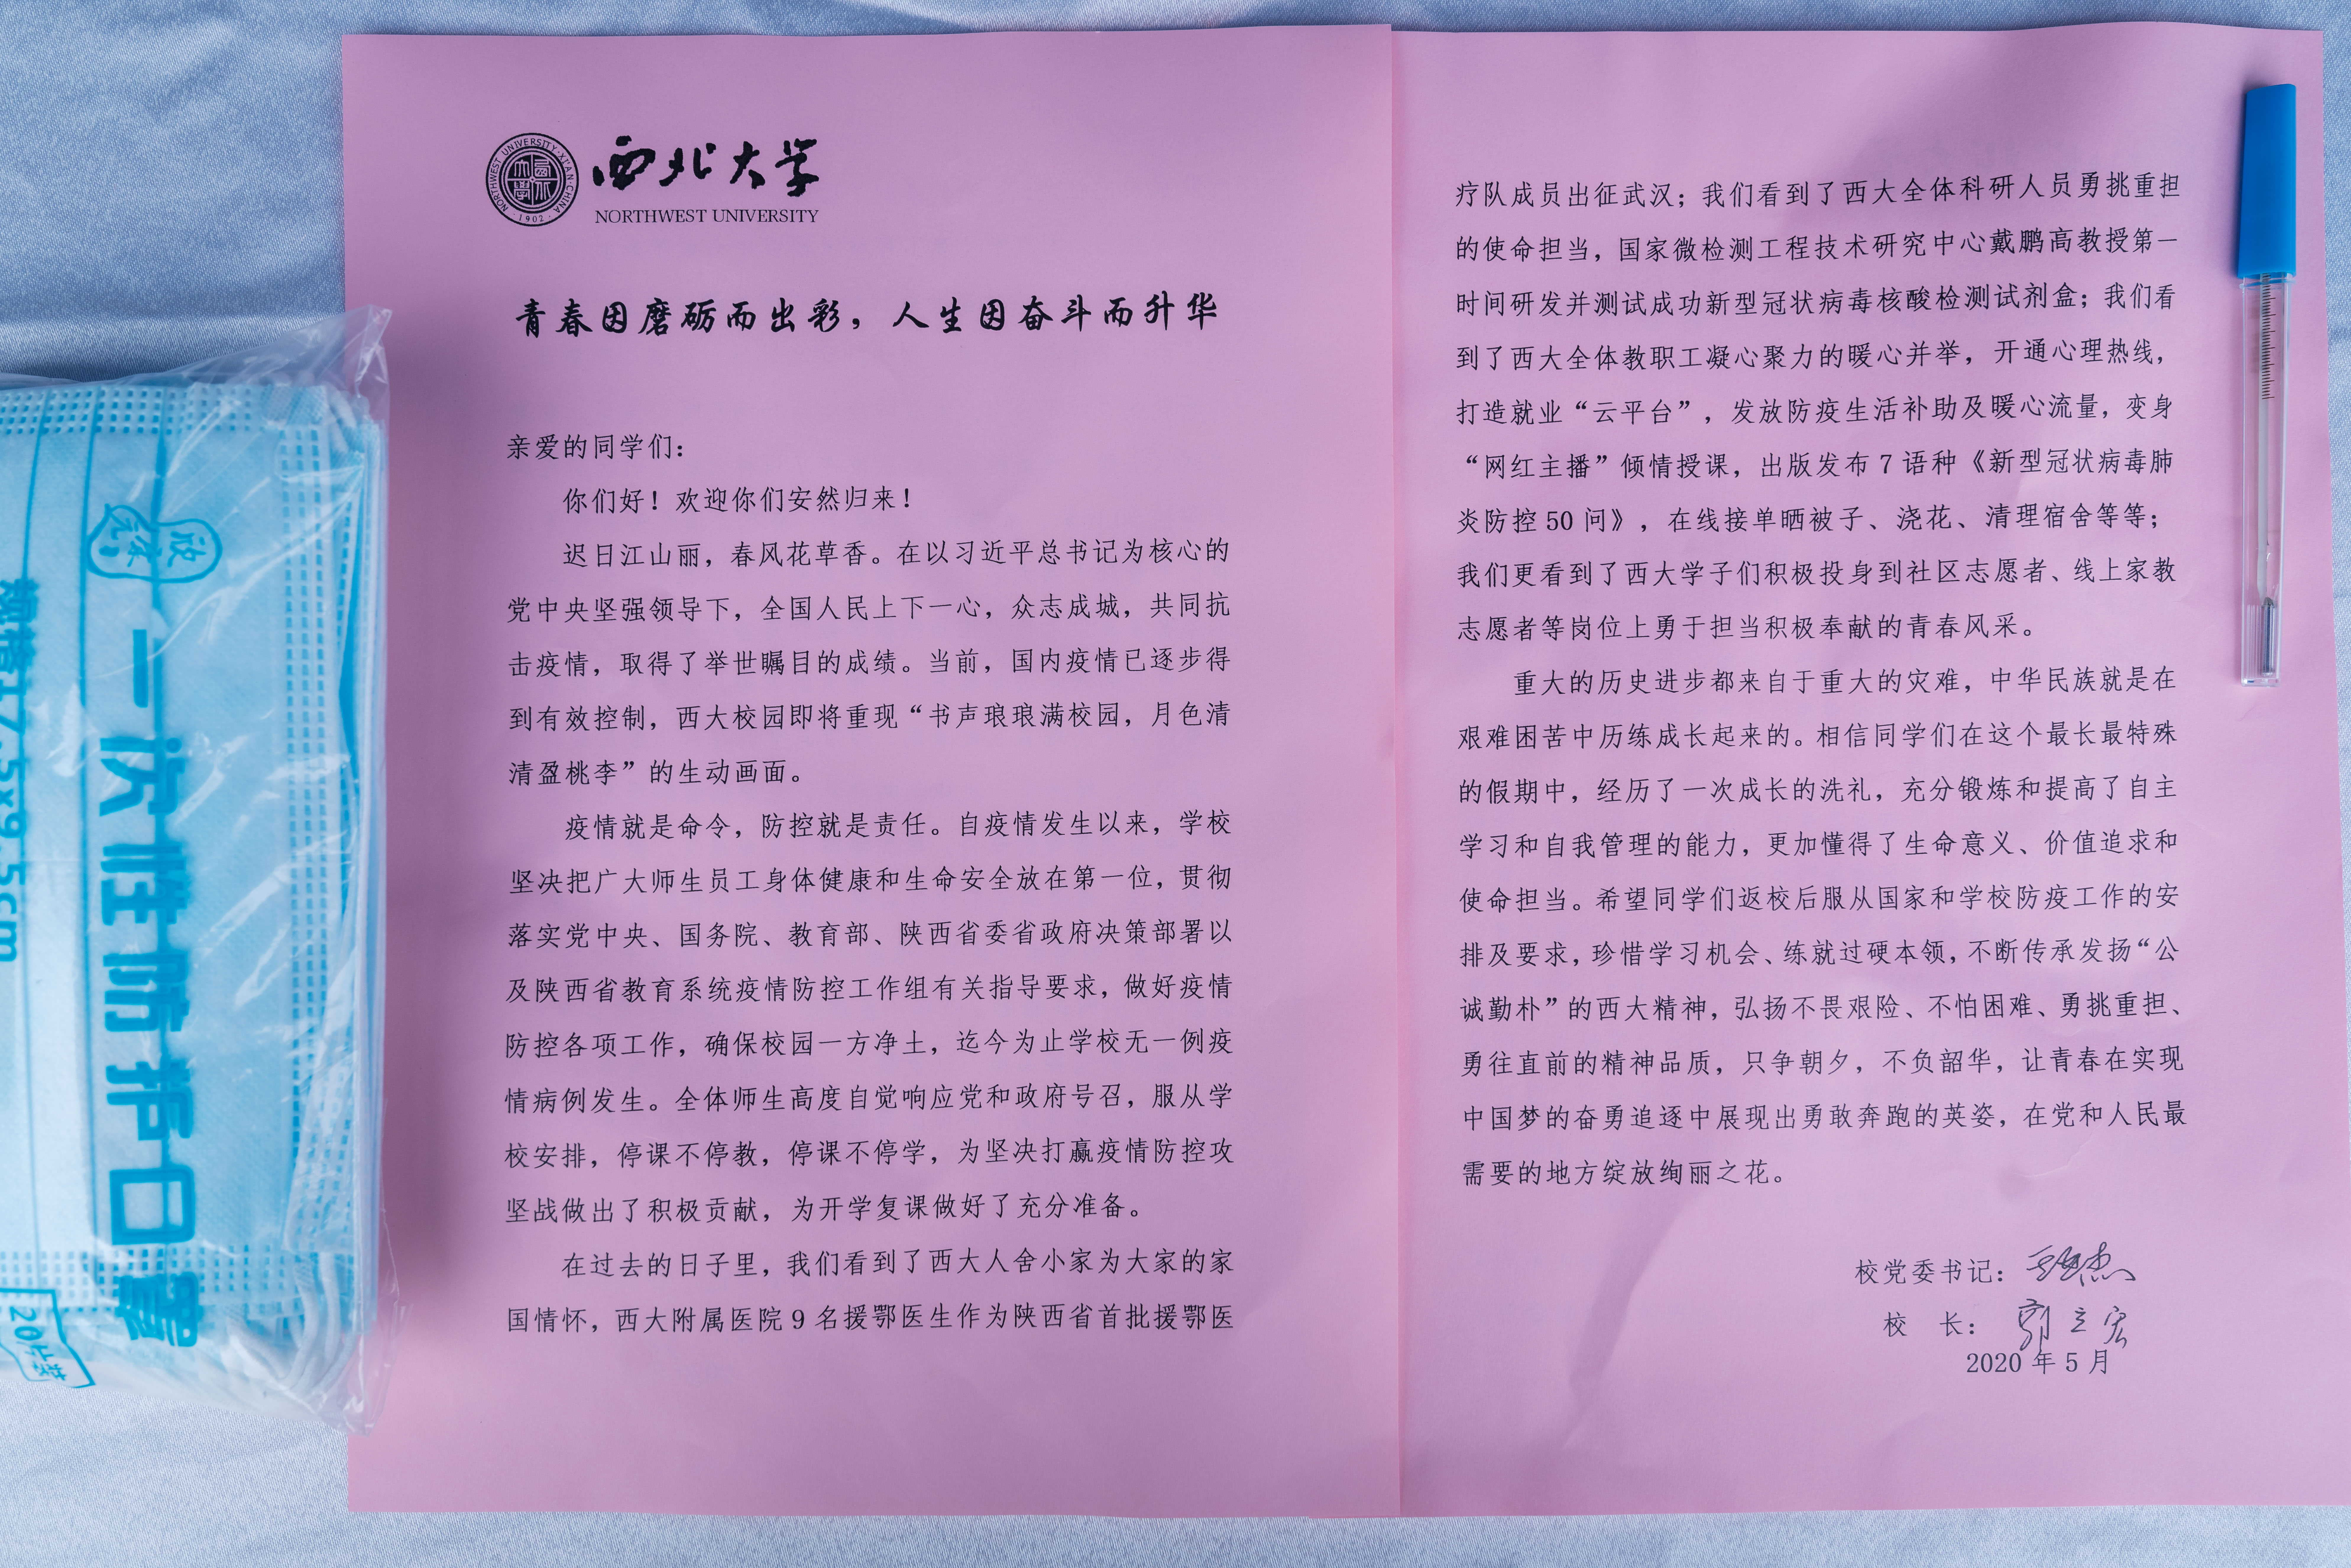 一次性防护口罩
17.5x9.5cm
NORTHWEST UNIVERSITY·XI'AN·CHINA
·1902·
西北大学
NORTHWEST UNIVERSITY
青春因磨砺而出彩，人生因奋斗而升华
亲爱的同学们：
你们好！欢迎你们安然归来！
迟日江山丽，春风花草香。在以习近平总书记为核心的
党中央坚强领导下，全国人民上下一心，众志成城，共同抗
击疫情，取得了举世瞩目的成绩。当前，国内疫情已逐步得
到有效控制，西大校园即将重现“书声琅琅满校园，月色清
清盈桃李”的生动画面。
疫情就是命令，防控就是责任。自疫情发生以来，学校
坚决把广大师生员工身体健康和生命安全放在第一位，贯彻
落实党中央、国务院、教育部、陕西省委省政府决策部署以
及陕西省教育系统疫情防控工作组有关指导要求，做好疫情
防控各项工作，确保校园一方净土，迄今为止学校无一例疫
情病例发生。全体师生高度自觉响应党和政府号召，服从学
校安排，停课不停教，停课不停学，为坚决打赢疫情防控攻
坚战做出了积极贡献，为开学复课做好了充分准备。
在过去的日子里，我们看到了西大人舍小家为大家的家
国情怀，西大附属医院 9 名援鄂医生作为陕西省首批援鄂医
疗队成员出征武汉；我们看到了西大全体科研人员勇挑重担
的使命担当，国家微检测工程技术研究中心戴鹏高教授第一
时间研发并测试成功新型冠状病毒核酸检测试剂盒；我们看
到了西大全体教职工凝心聚力的暖心并举，开通心理热线，
打造就业“云平台”，发放防疫生活补助及暖心流量，变身
“网红主播”倾情授课，出版发布 7 语种《新型冠状病毒肺
炎防控 50 问》，在线接单晒被子、浇花、清理宿舍等等；
我们更看到了西大学子们积极投身到社区志愿者、线上家教
志愿者等岗位上勇于担当积极奉献的青春风采。
重大的历史进步都来自于重大的灾难，中华民族就是在
艰难困苦中历练成长起来的。相信同学们在这个最长最特殊
的假期中，经历了一次成长的洗礼，充分锻炼和提高了自主
学习和自我管理的能力，更加懂得了生命意义、价值追求和
使命担当。希望同学们返校后服从国家和学校防疫工作的安
排及要求，珍惜学习机会、练就过硬本领，不断传承发扬“公
诚勤朴”的西大精神，弘扬不畏艰险、不怕困难、勇挑重担、
勇往直前的精神品质，只争朝夕，不负韶华，让青春在实现
中国梦的奋勇追逐中展现出勇敢奔跑的英姿，在党和人民最
需要的地方绽放绚丽之花。
校党委书记：
校 长： 郭立宏
2020 年 5 月